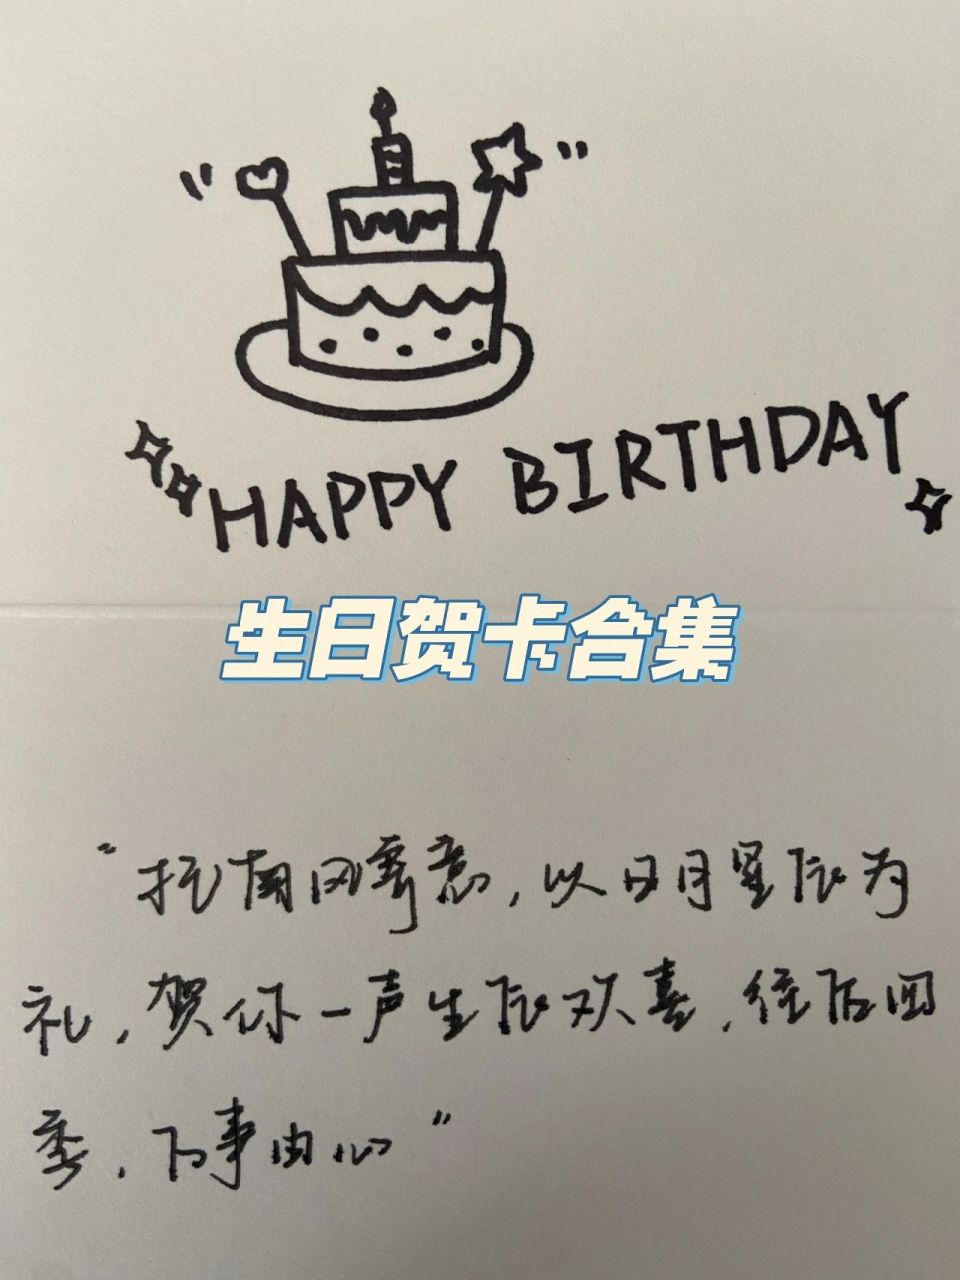 HAPPY BIRTHDAY
生日贺卡合集
“托南风寄意，以日月星辰为
礼，贺你一声生辰欢喜，往后四
季，万事由心”